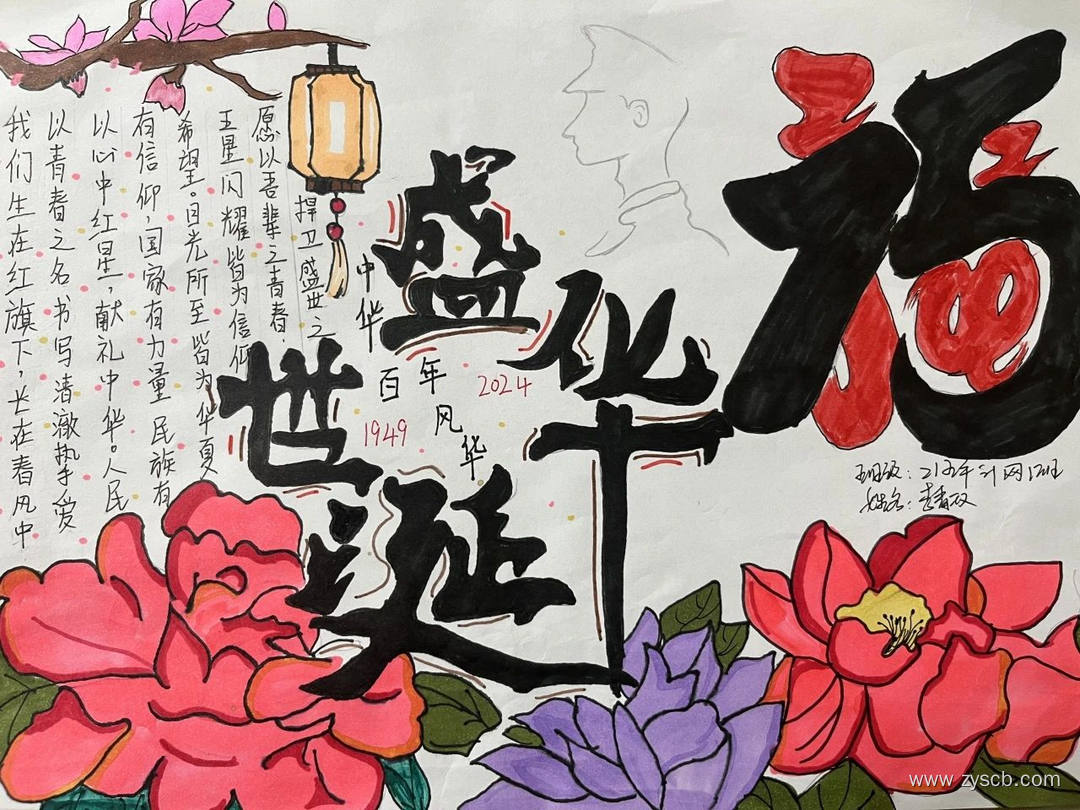 我们生在红旗下，长在春风中
以青春之名书写清澈挚爱
以心中红星，献礼中华。人民
有信仰，国家有力量 民族有
希望。目光所至 皆为华夏
五星闪耀皆为信仰
愿以吾辈之青春，
捍卫盛世之
中华
盛世华诞
百年风华
1949
2024
福
班级：21五年计网1班
姓名：李
www.zyscb.com